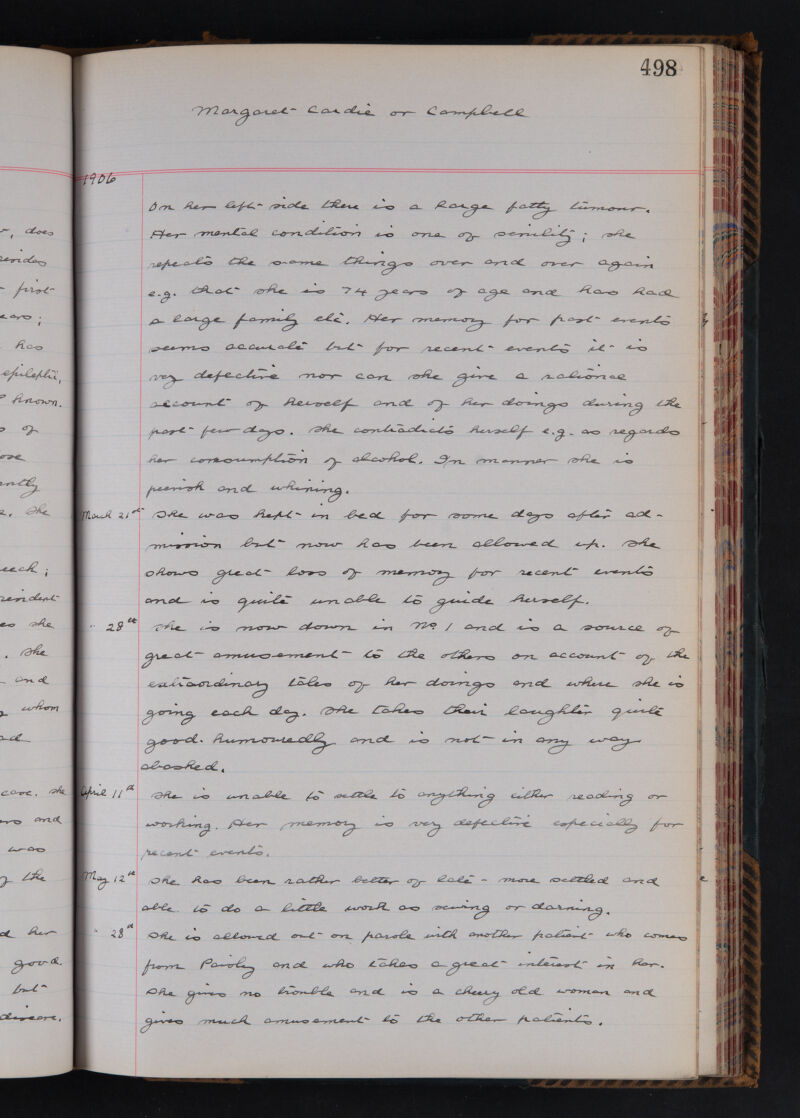 498
Margaret Cardie or Campbell
1906
On her left side there is a large fatty tumour.
Her mental condition is one of senility; she
repeats the same things over and over again
e.g. that she is 74 years of age and has had
a large family etc. Her memory for past events
seems accurate but for recent events it is
very defective nor can she give a rational
account of herself and of her doings during the
past few days. She contradicts herself e.g. as regards
her consumption of alcohol. In manner she is
peevish and whining.
March 21st She was kept in bed for some days after ad-
mission but now has been allowed up. She
shows great loss of memory for recent events
and is quite unable to guide herself.
" 28th She is now down in No 1 and is a source of
great amusement to the others on account of the
extraordinary tales of her doings and where she is
going each day. She takes their laughter quite
good-humouredly and is not in any way
abashed.
April 11th She is unable to settle to anything either reading or
working. Her memory is very defective especially for
recent events.
May 12th She has been rather better of late - more settled and
able to do a little work as sewing or darning.
" 28th She is allowed out on parole with another patient who comes
from Paisley and who takes a great interest in her.
She gives no trouble and is a cheery old woman and
gives much amusement to the other patients.
does
first
has
epileptic,
known.
of
She
speech;
she
. She
and
whom
care. She
and
was
of the
her
good.
but
disease.